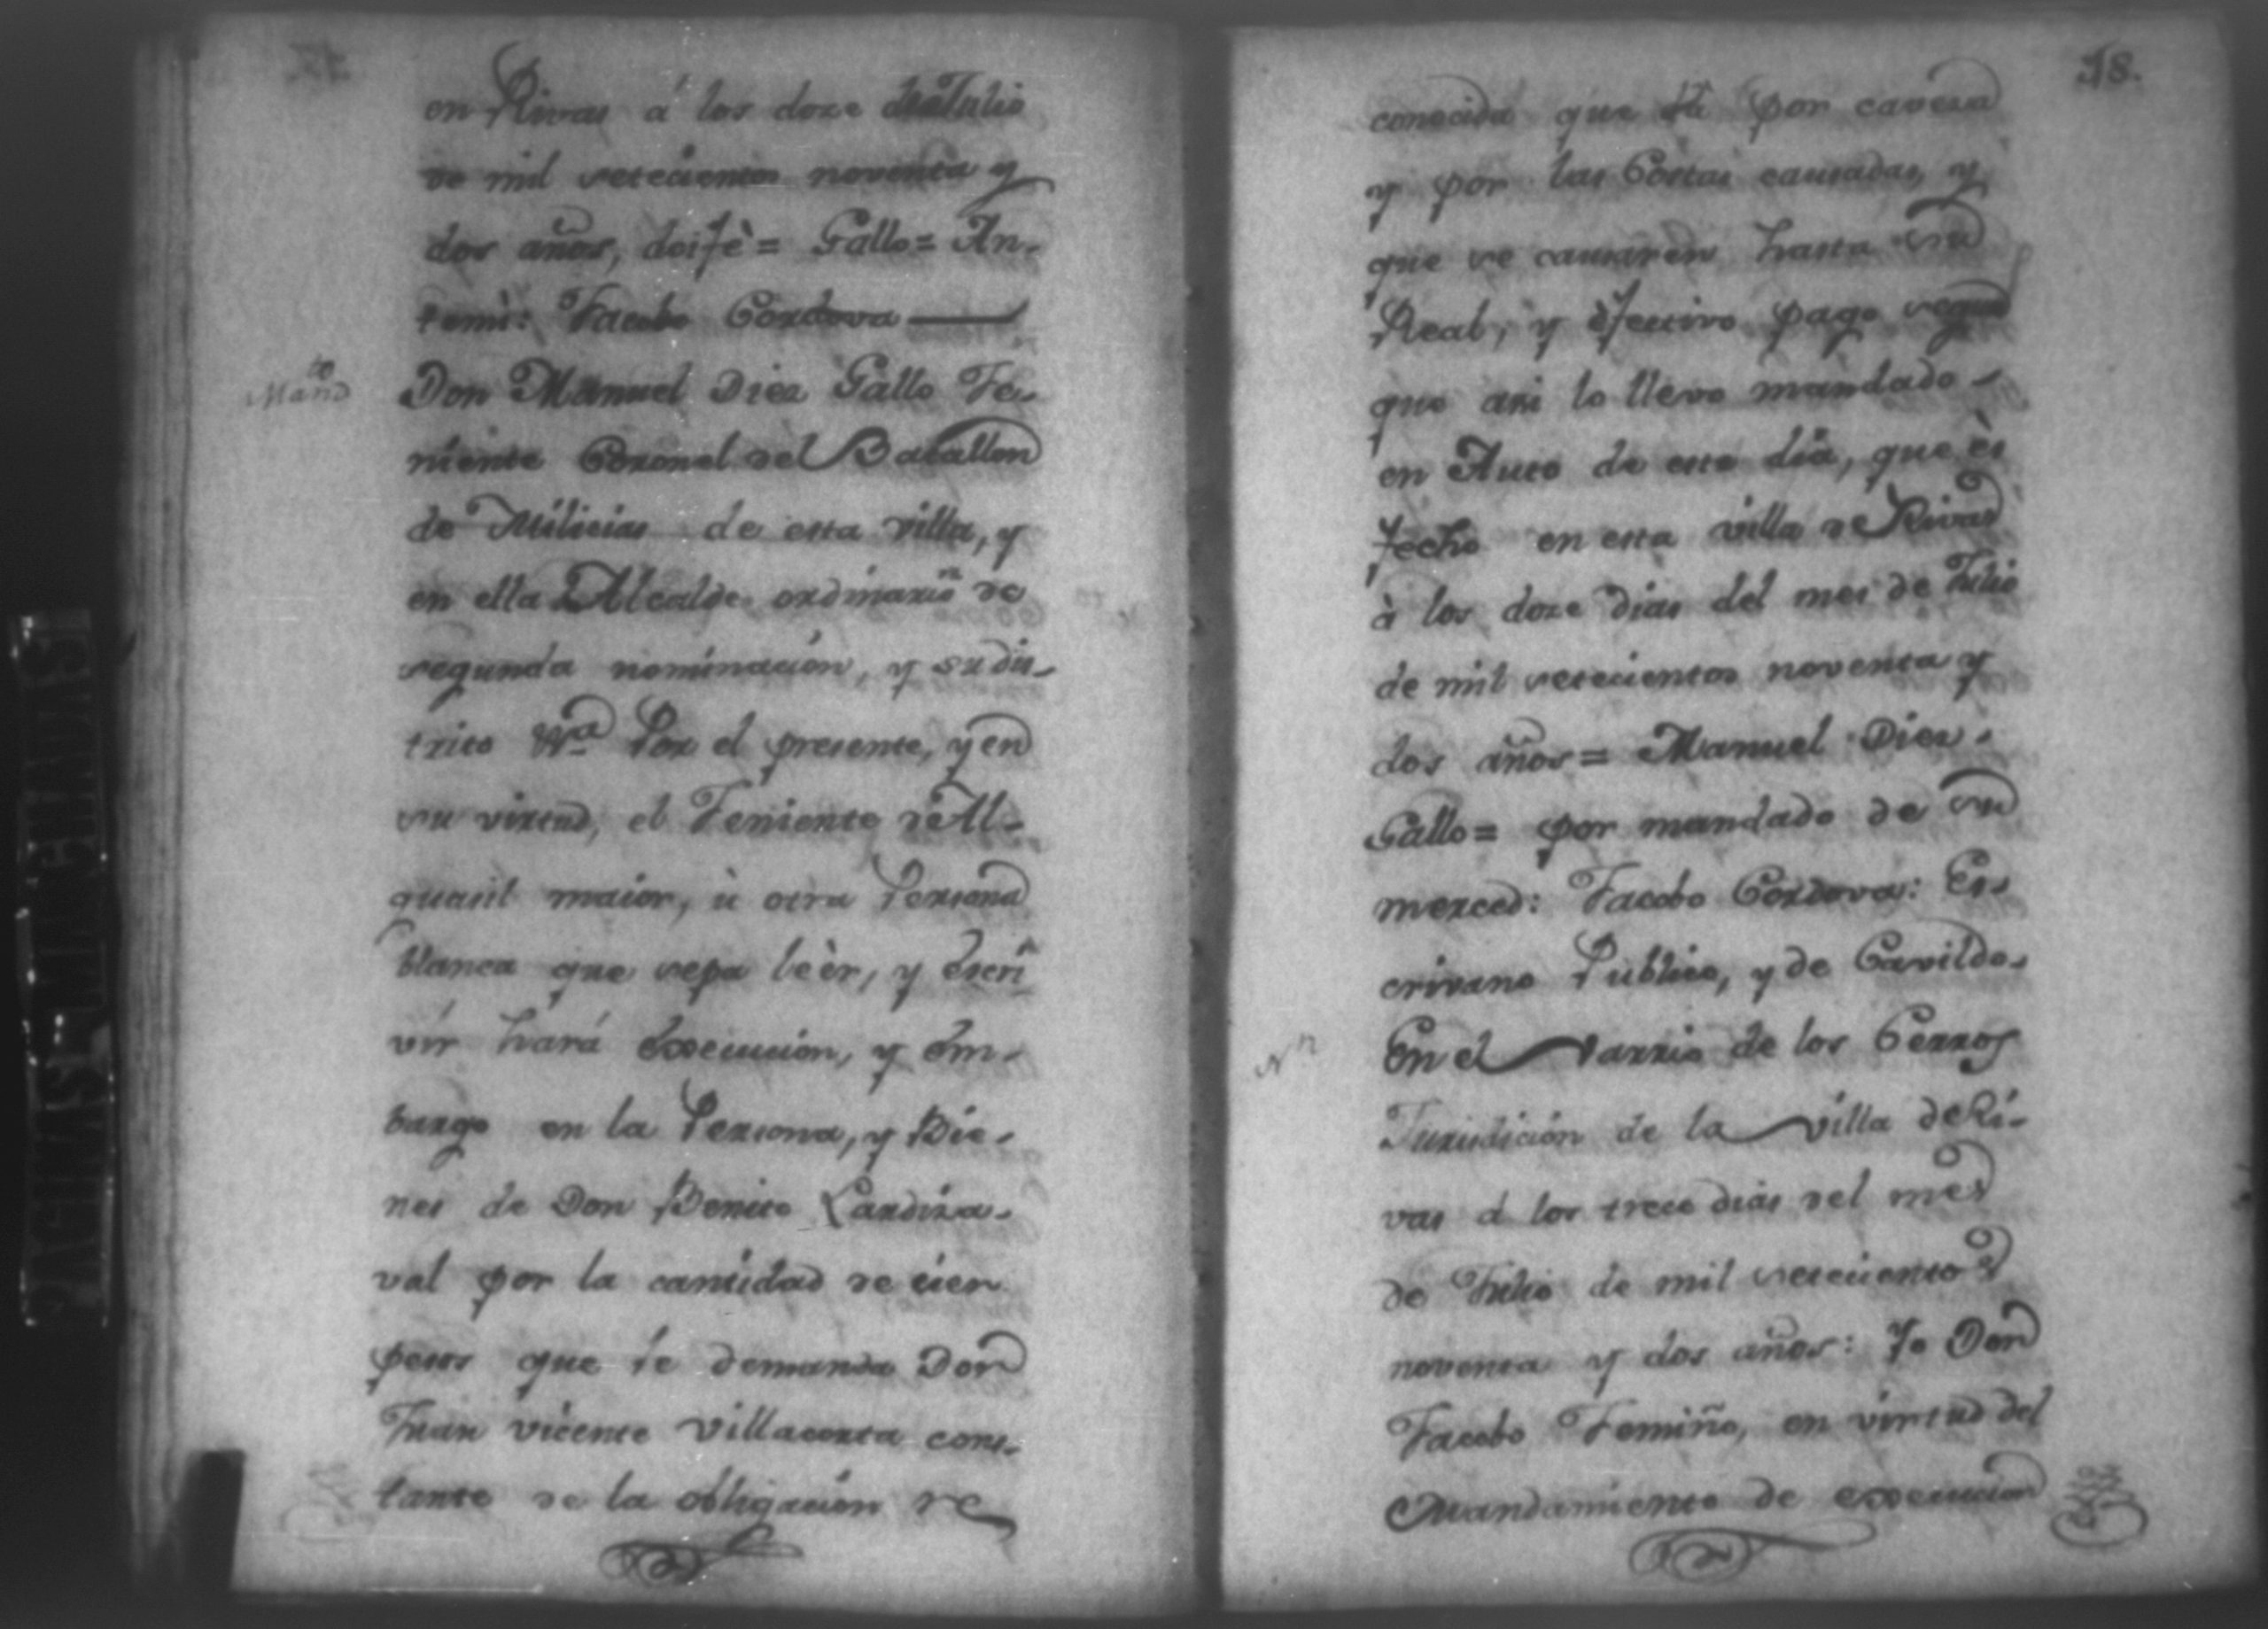 en Rivas á los doze de Julio
de mil setecientos noventa y
dos años, doi fè = Gallo = An-
temì: Jacobo Cordova
Mand.to
Don Manuel Diez Gallo Te-
niente Coronel del Batallon
de Milicias de esta villa, y
en ella Alcalde ordinario de
segunda nominacion, y su dis-
trito &.a Por el presente, y en
su virtud, el Teniente de Al-
guasil maior, ù otra Persona
blanca que sepa leèr, y escri
vír hará execucion, y em-
bargo en la Persona, y Bie-
nes de Don Benito Landiza-
val por la cantidad de cien
pesos que le demanda Don
Juan vicente villacorta cons-
tante de la obligacion re
18.
conocida que và por cavesa
y por las Costas causadas, y
que se causaren hasta su
Real, y efectivo pago segun
que asi lo llevo mandado
en Auto de este dia, que ès
fecho en esta villa de Rivas
à los doze dias del mes de Julio
de mil setecientos noventa y
dos años = Manuel Diez
Gallo = por mandado de su
merced: Jacobo Cordova: Es-
crivano Publico, y de Cavildo
N.n
En el varrio de los Cerros
Jurisdicion de la villa de Ri-
vas á los trece dias del mes
de Julio de mil setecientos
noventa y dos años: Yo Don
Jacobo Temiño, en virtud del
Mandamiento de execucion
PAGINAS MANCHADAS